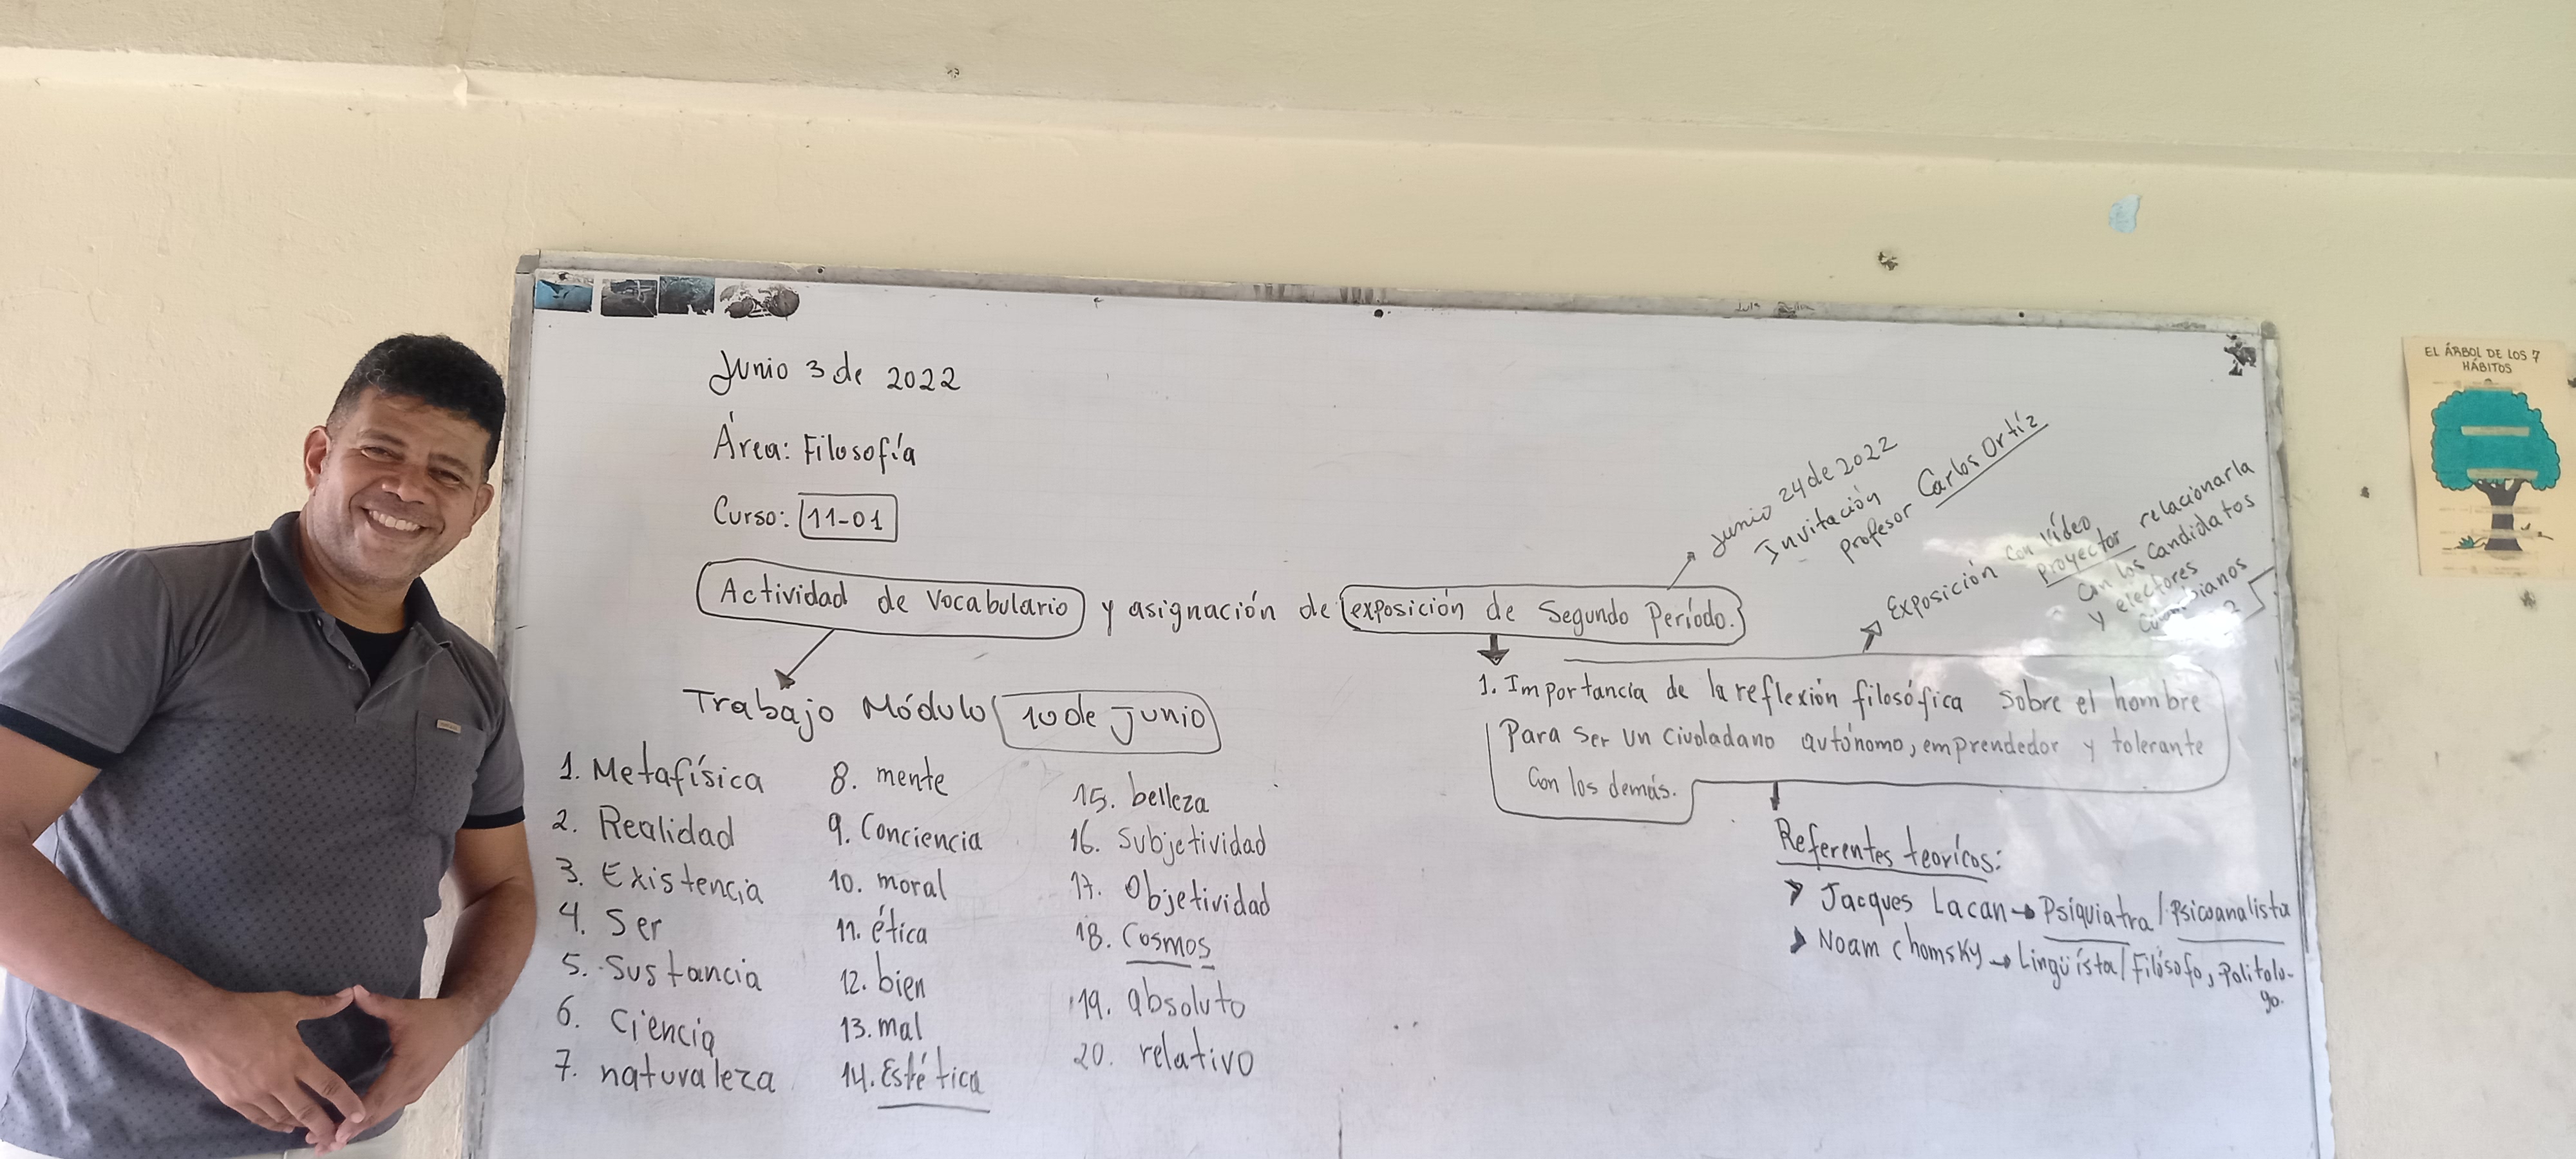 Junio 3 de 2022
Área: Filosofía
Curso: 11-01
Actividad de Vocabulario y asignación de exposición de Segundo Período.
Junio 24 de 2022
Invitación
Profesor Carlos Ortiz
Exposición con Vídeo
Proyector relacionarla
con los candidatos
y electores
Trabajo Módulo 10 de Junio
1. Metafísica
2. Realidad
3. Existencia
4. Ser
5. Sustancia
6. Ciencia
7. naturaleza
8. mente
9. Conciencia
10. moral
11. ética
12. bien
13. mal
14. Estética
15. belleza
16. Subjetividad
17. Objetividad
18. Cosmos
19. absoluto
20. relativo
1. Importancia de la reflexión filosófica sobre el hombre
Para ser un ciudadano autónomo, emprendedor y tolerante
con los demás.
Referentes teorícos:
Jacques Lacan → Psiquiatra / Psicoanalista
Noam Chomsky → Lingüísta / Filósofo, Politolo-
go.
EL ÁRBOL DE LOS 7
HÁBITOS